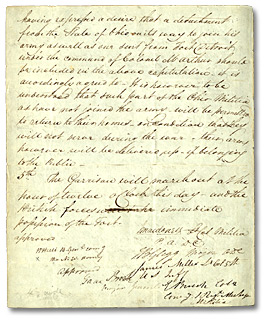 having expressed a desire that a detachment
from the State of Ohio on its way to join his
army as well as one sent from Fort Detroit
under the command of Colonel McArthur should
be included in the above capitulation it is
accordingly agreed to. It is however to be
understood that such part of the Ohio Militia
as have not joined the army will be permitted
to return to their homes on condition that they
will not serve during the war their arms
however will be delivered up if belonging
to the Public
5th The Garrison will march out at the
hour of twelve o'Clock this day and the
British forces immediate
possession of the Fort
approved
Militia
P. A. D. C.
approved
James Miller Lt Col 5th
U S Inf
Isaac Brock
E Brush Colo
Com'g 1st Regt Michigan
Militia